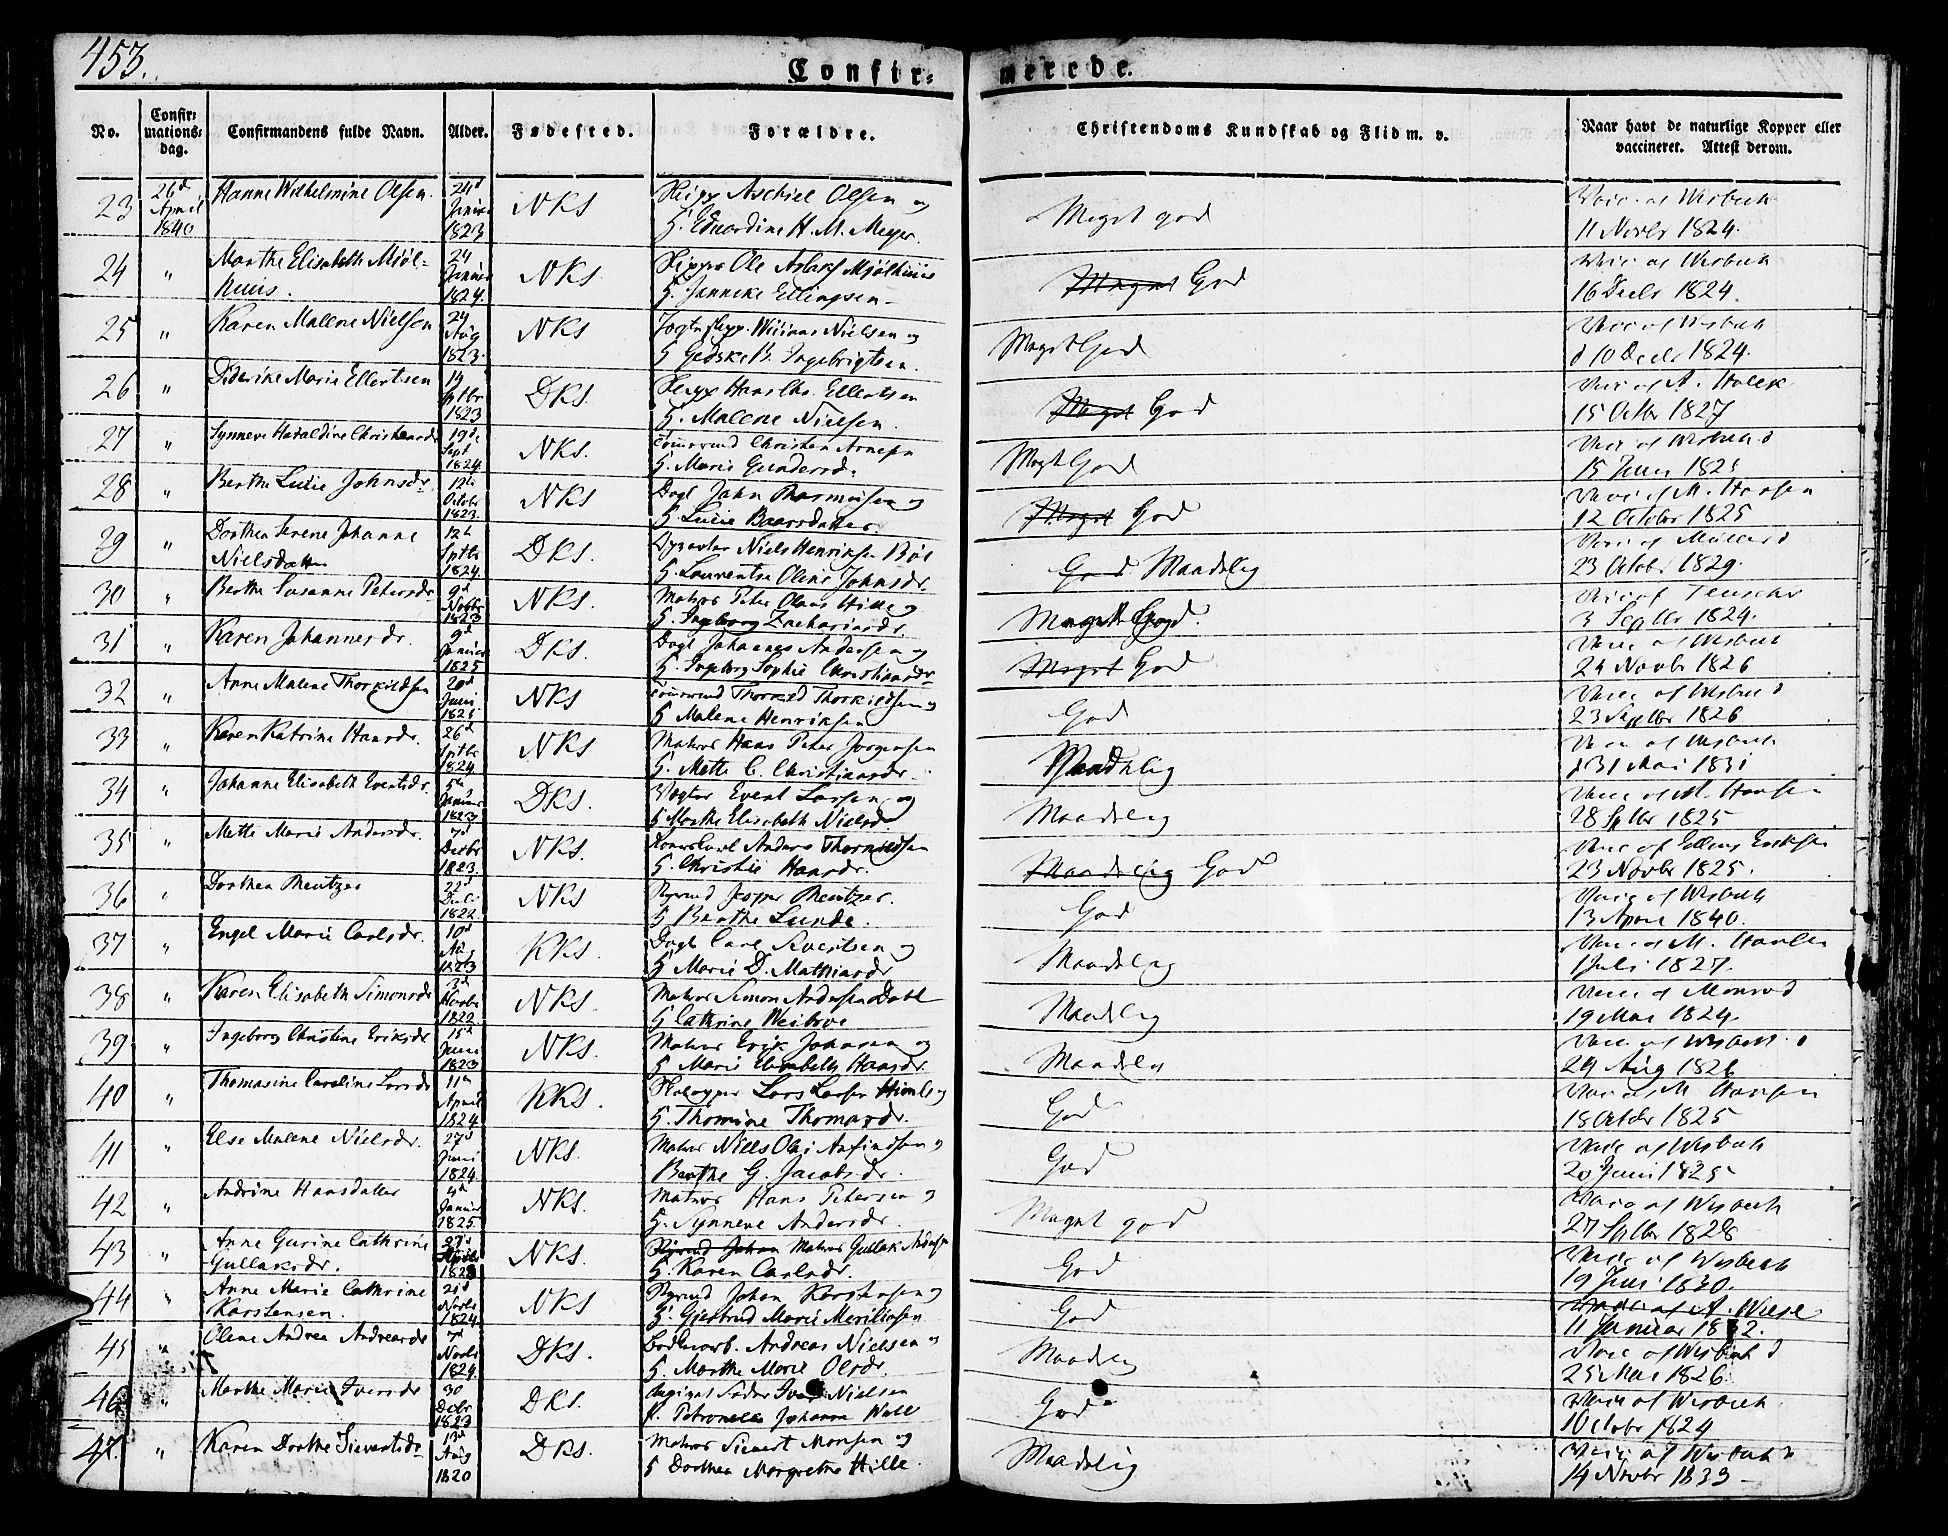 453.
Confir=
merede.
No.
Confir=
mations=
dag.
Confirmandens fulde Navn.
Alder.
Fødested.
Forældre.
Christendoms Kundskab og Flid m. v.
Naar havt de naturlige Kopper eller
vaccineret. Attest derom.
23 26d April 1840 Hanne Wilhelmine Olsen. 24d Januar 1823 NKS Aschiel Olsen og
H. Eduardine H. M. Meyer.
Meget god
Vacc. af Wisbech
11 Novbr 1824.
24 " Marthe Elisabeth Mjøl=
huus. 24 Januar 1824. NKS Ole Aslaks Mjølhuus
H. Janneke Ellingsen
Meget God
Vacc af Wisbech
16 Decbr 1824.
25 " Karen Malene Nielsen 24 Aug 1823. NKS Nielsen og
H Gedske B. Ingebrigtsen.
Meget God
Vacc af Wisbech
d 10 Decbr 1824.
26 " Diderike Marie Ellertsen 19 Septbr 1823 DKS. Hans Chr. Ellertsen
H. Malene Nielsen.
Meget God
Vacc af A. Holck
15 Octbr 1827
27 " Synneve Haraldine Christensdr 19de Sept 1824 NKS. Christen Arnesen
H. Marie Gundersd.
Meget God
Vacc af Wisbech
15 Juni
28 " Berthe Lucie Johnsdr 12te Octobr 1823. NKS Dagl John Rasmussen og
H. Lucie Baarsdatter.
Meget God
Vacc af M. Hansen
12 October 1825
29 " Dorthea Serene Johanne
Nielsdatter 12te Septbr 1824. DKS. Niels Henriksen
H. Laurentse Oline Johnsdr.
God Maadelig
Vacc af
23 Octobr 1829.
30 " Berthe Susanne Petersdr 9d Novbr 1823 NKS. Matros Peter Olaus Hille og
H. Ingeborg Zachariasdr.
Meget God.
Vacc af
3 Septbr 1824.
31 " Karen Johannesdr. 9d Januar 1825 DKS. Dagl Johannes Andersen og
H. Ingeborg Sophie Christiansdr
Meget God
Vacc af Wisbech
24 Novbr 1826
32 " Anne Malene Thorkildsen 20d Juni NKS Thorkildsen og
H Malene Henriksen
God
Vacc af Wisbech
23 Septbr 1826
33 " Karen Katrine Hansdr. 26d Septbr 1824 NKS Matros Hans Peter Jørgensen
H. Mette C. Christiansdr.
Maadelig
Vacc af Wisbech
d 31 Mai 1831
34 " Johanne Elisabeth Evertsdr. 5te Januar 1823 DKS. Vægter Evert Larsen og
H Marthe Elisabeth Nielsdr
Maadelig
Vacc af M. Hansen
28 Septbr 1825
35 " Mette Marie Andersdr. 7d Decbr 1823. NKS. Anders Thormodsen
H. Christie Hansdr.
Maadelig God
Vacc af Elling Eriksen
23 Novbr 1825.
36 " Dorthea Mentzer 22d Juli 1822 NKS Jesper Mentzer.
H Berthe Lunde.
God
Vacc af Wisbech
13 April 1840.
37 " Engel Marie Carlsdr. 10d 1823 KKS. Dagl Carl Sivertsen og
H Marie D. Mathiasdr
Maadelig
Vacc af M. Hansen
1 Juli 1827.
38 " Karen Elisabeth Simonsdr 3d Novbr 1822 NKS. Matros Simon Andersen Dahl
H Cathrine
Maadelig
Vacc af Monrad
19 Mai 1824
39 " Ingeborg Christine Eriksdr 15d Juni 1823 NKS. Matros Erik Johnsen og
H Marie Elisabeth Hansdr.
Maadelig
Vacc af Wisbech
29 Aug 1826
40 " Thomasine Caroline Larsdr 11te April 1824 KKS. Lars Larsen og
H. Thomine Thomasdr.
God
Vacc af M Hansen
15 Octobr 1825
41 " Else Malene Nielsdr. 27d Juni 1824 NKS. Matros Niels Olai Anfindsen og
Berthe G. Jacobsdr.
God
Vacc af Wisbech
20 Juni 1825
42 " Andrine Hansdatter Januar 1825 NKS. Matros Hans Petersen og
H. Synneve Andersdr.
Meget god
Vacc af Wisbech
27 Septbr 1828
43 " Anne Gurine Cathrine
Gullaksdr. 27d 1823 NKS. Johan Matros Gullak Andersen
H. Karen Carlsdr.
God
Vacc af Wisbech
19 Juni 1830.
44 " Anne Marie Cathrine
Karstensen. 21d Novbr 1824 NKS Johan Karstensen og
H. Gjertrud Marie
God
Vacc af A. Wiese
11 Januar 1832.
45 " Oline Andrea Andreasdr 7d Novbr 1824. DKS. Andreas Nielsen og
H. Marthe Marie Olsdr.
Maadelig
Vacc af Wisbech
25 Mai 1826
46 " Marthe Marie Iversdr 30 Decbr 1823 DKS. Angivet Fader Iver Nielsen
Petronelle Johanne
God
Vacc af Wisbech
October 1824
47. " Karen Dorthe Sievertsdr 13d Aug 1820 DKS. Matros Sievert Monsen og
H Dorthea Margrethe Hille.
Maadelig
Vacc af Wisbech
14 Novbr 1833